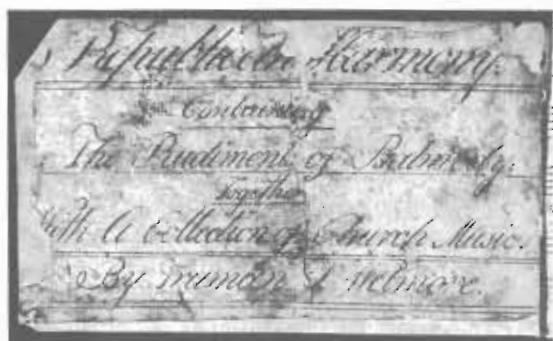 Republican Harmony.
Containing
The Rudiment of Psalmody.
Together
With A Collection of Church Music.
By Truman S Wetmore.